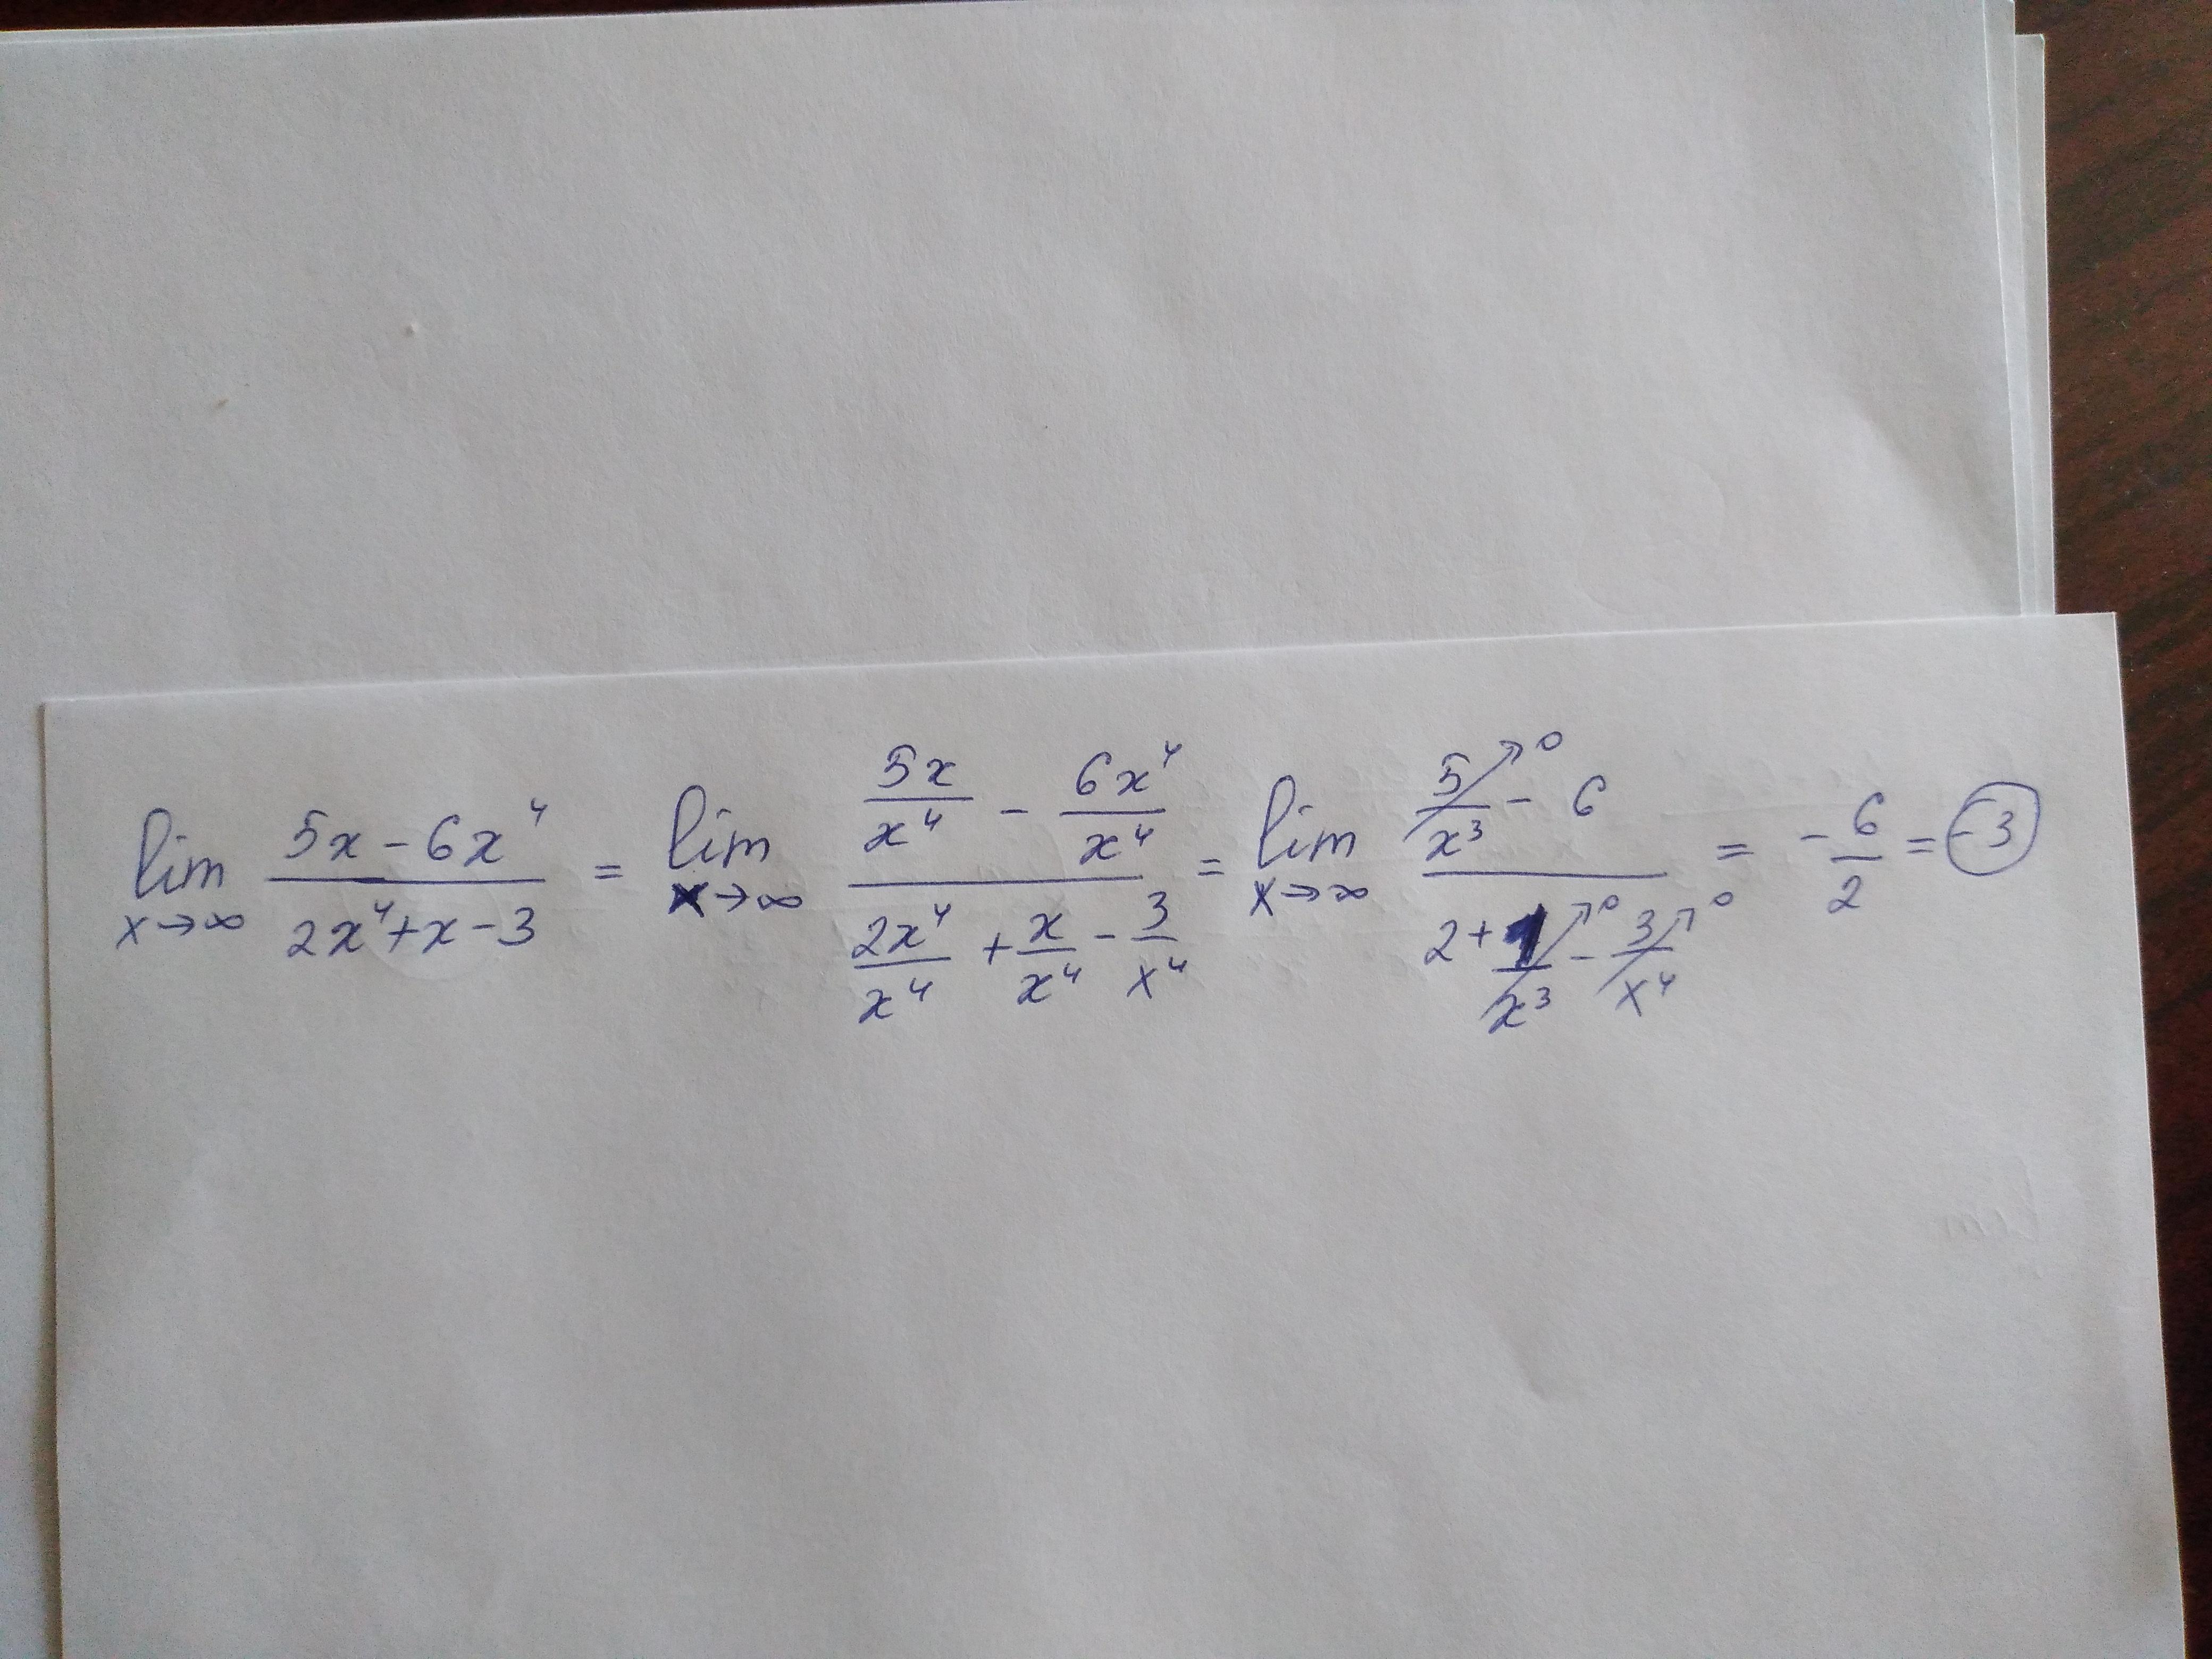 lim x→∞ (5x − 6x⁴)/(2x⁴ + x − 3) = lim x→∞ (5x/x⁴ − 6x⁴/x⁴)/(2x⁴/x⁴ + x/x⁴ − 3/x⁴) = lim x→∞ (5/x³↗0 − 6)/(2 + 1/x³↗0 − 3/x⁴↗0) = −6/2 = −3